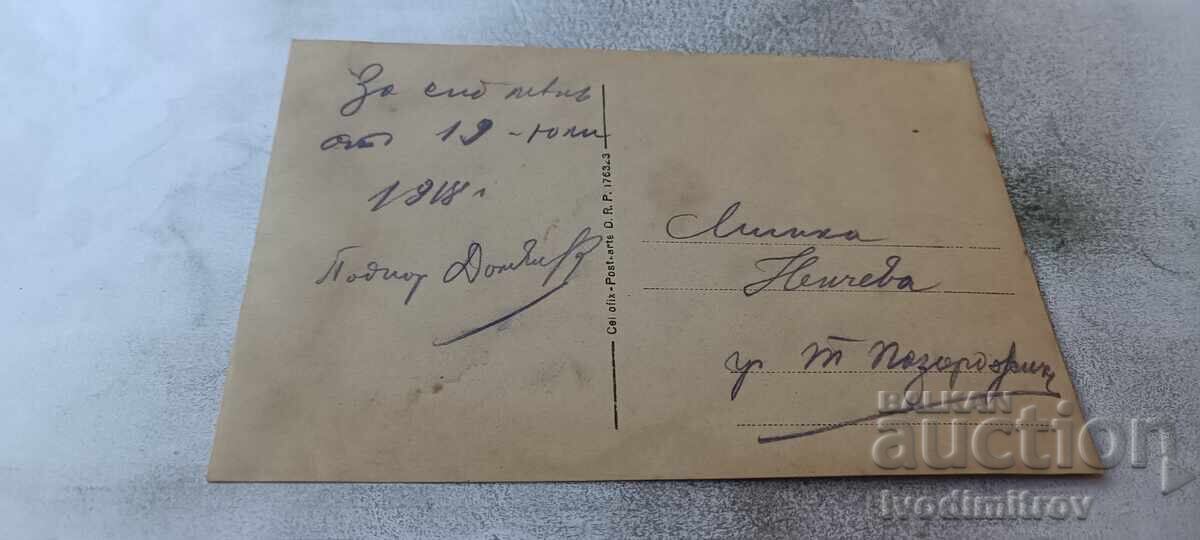 За
от 19 - юли
1918 г
Подпор
Cellofix - Post-arte D. R. P. 176323
Лигика
Ненчева
гр Т Пазарджик
BALKAN
auction
Ivodimitrov